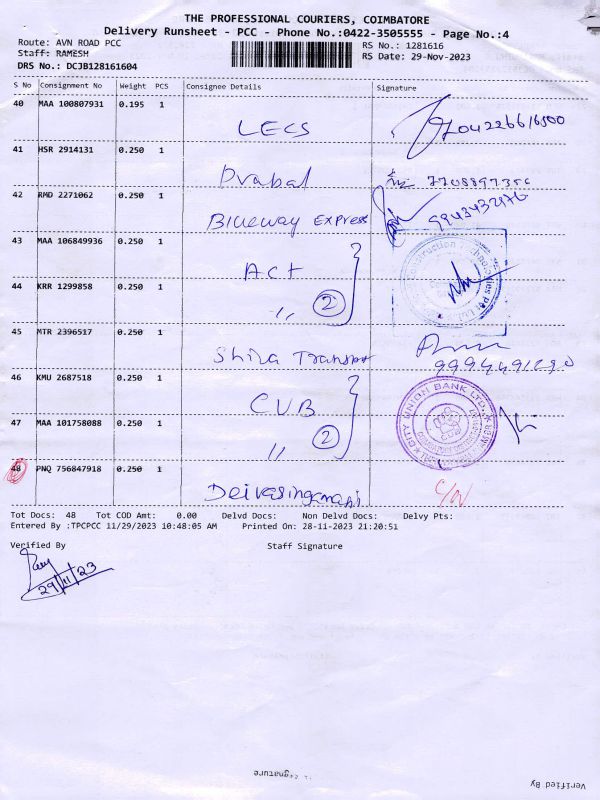 THE PROFESSIONAL COURIERS, COIMBATORE
Delivery Runsheet - PCC - Phone No.:0422-3505555 - Page No.:4
Route: AVN ROAD PCC RS No.: 1281616
Staff: RAMESH RS Date: 29-Nov-2023
DRS No.: DCJB128161604
S No Consignment No Weight PCS Consignee Details Signature
40 MAA 100807931 0.195 1
LECS
41 HSR 2914131 0.250 1
Prabal 7708897356
42 RMD 2271062 0.250 1
Blueway Express 9943432976
43 MAA 106849936 0.250 1
Act
44 KRR 1299858 0.250 1
,, 2
45 MTR 2396517 0.250 1
Shiva Transport
46 KMU 2687518 0.250 1
CUB CITY UNION BANK LTD.
47 MAA 101758088 0.250 1
,, 2
48 PNQ 756847918 0.250 1
Deivasingamani
Tot Docs: 48 Tot COD Amt: 0.00 Delvd Docs: Non Delvd Docs: Delvy Pts:
Entered By :TPCPCC 11/29/2023 10:48:05 AM Printed On: 28-11-2023 21:20:51
Verified By Staff Signature
29/11/23
Verified By